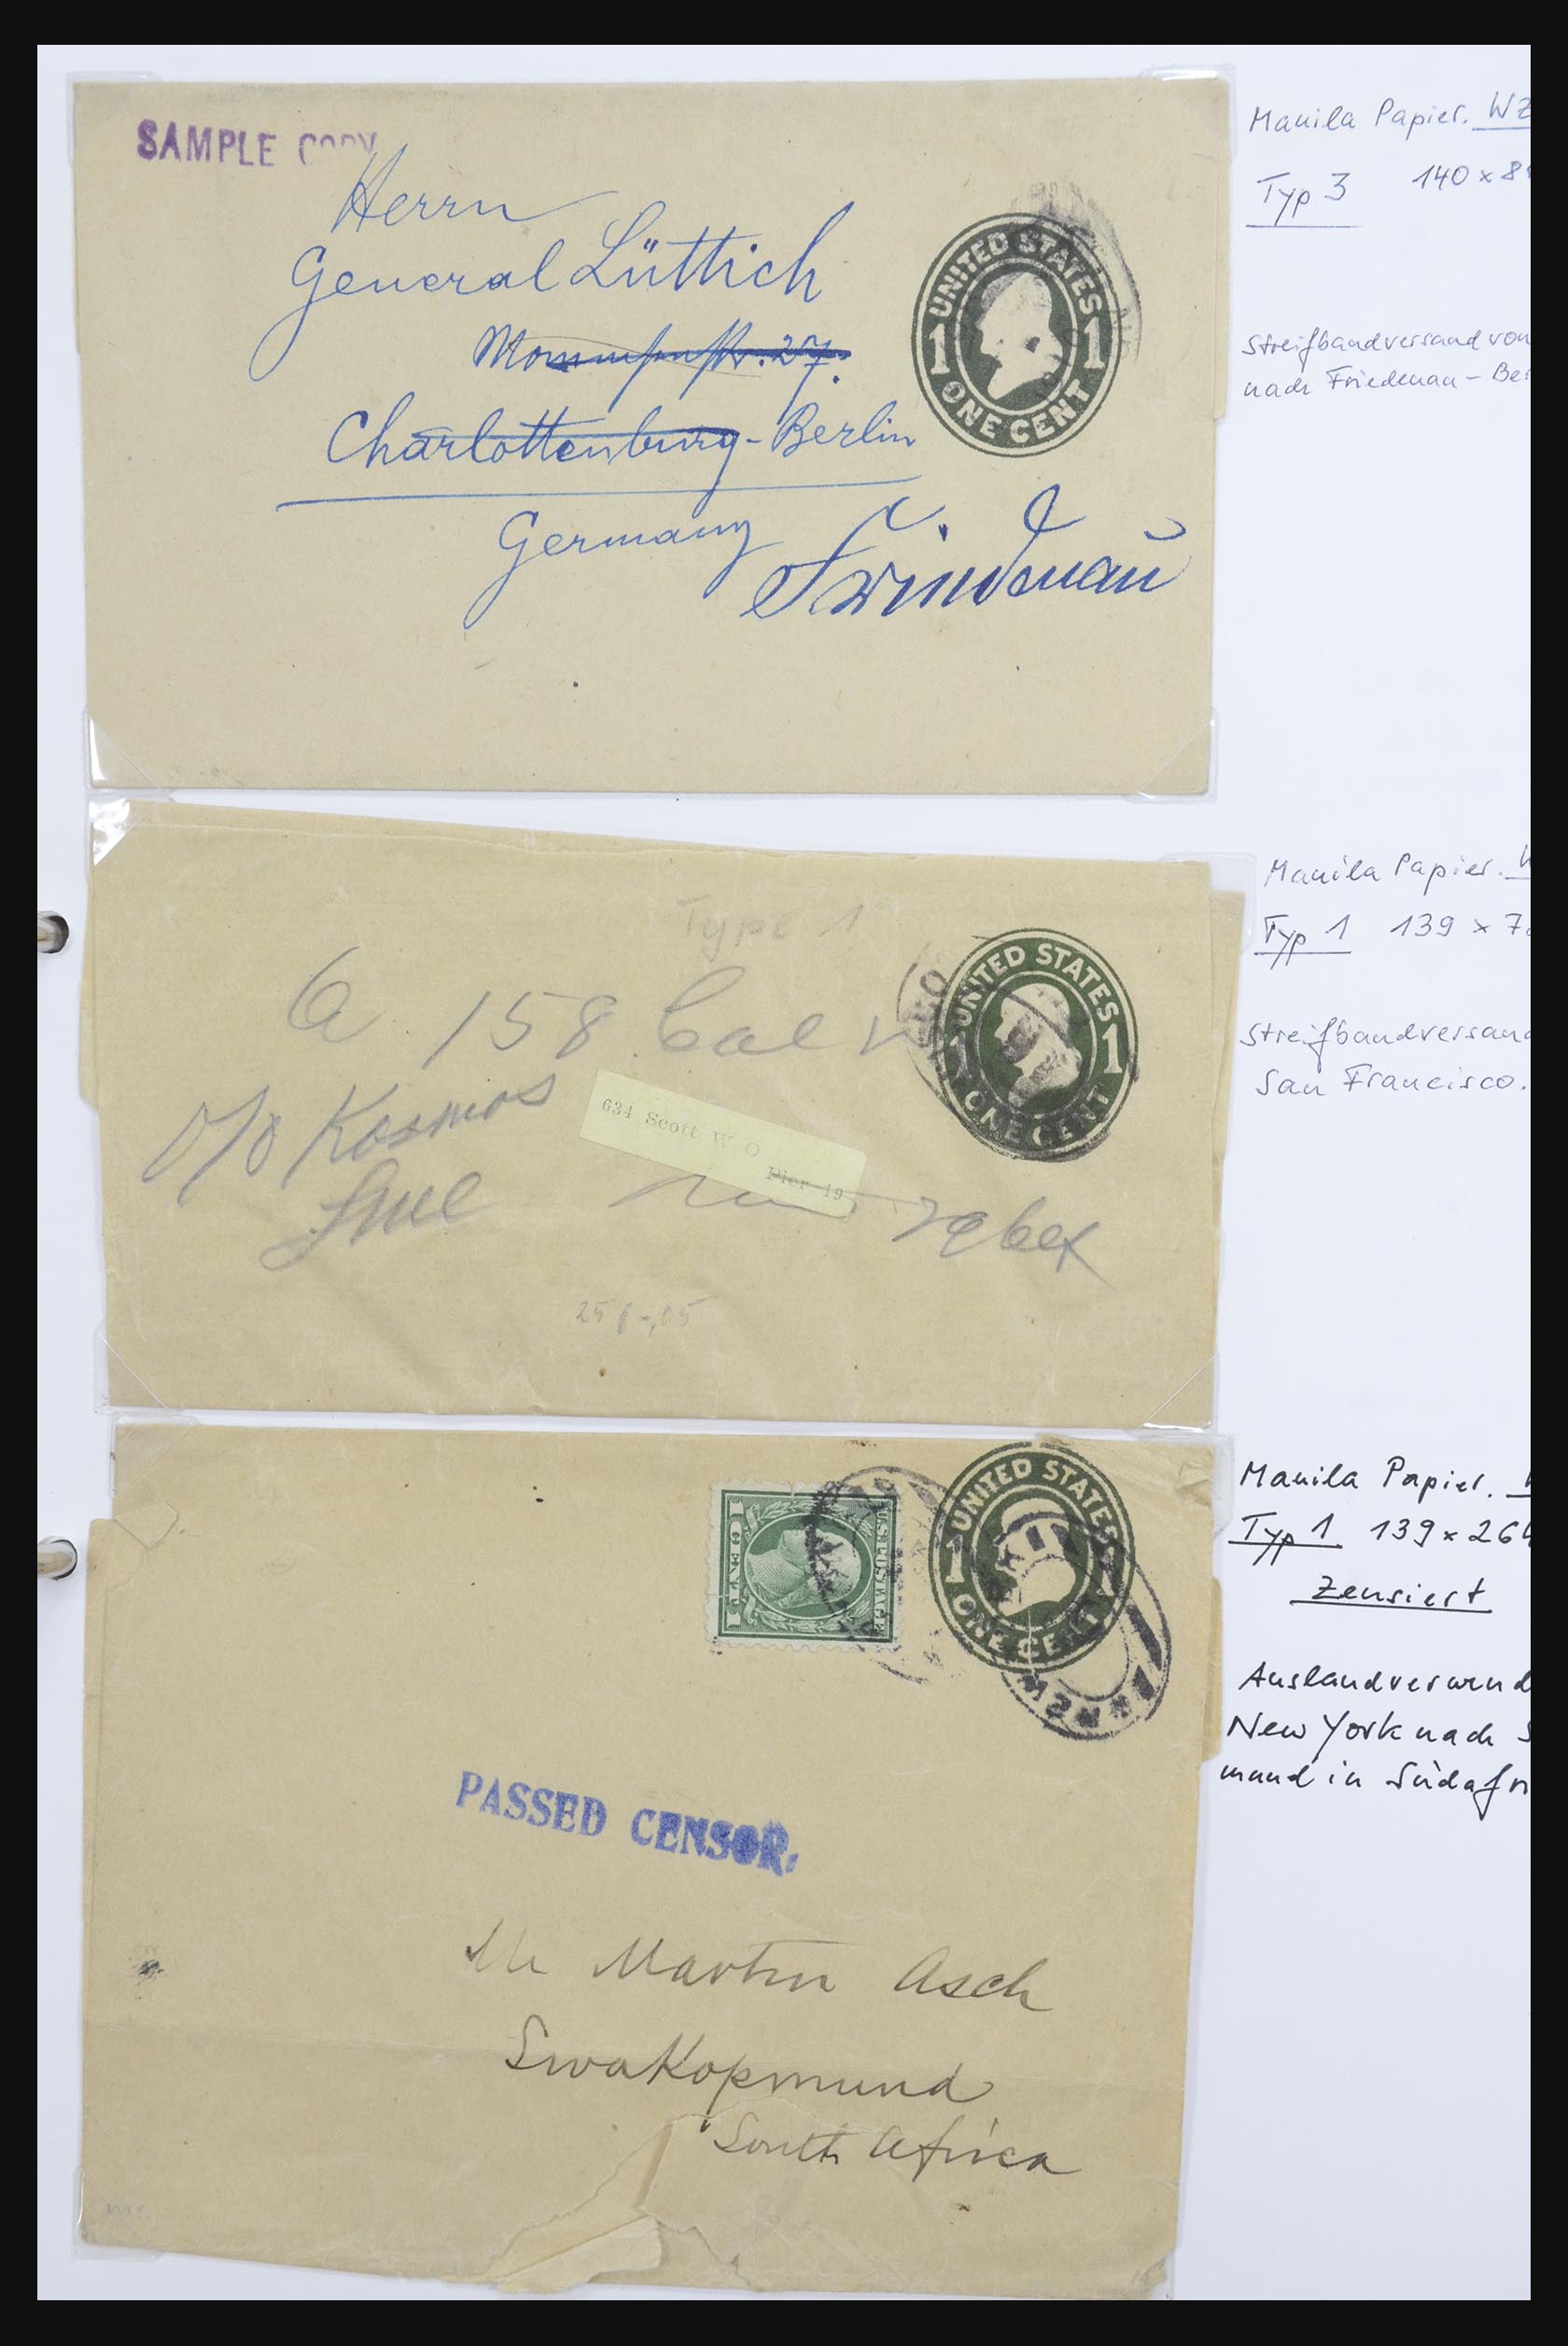 SAMPLE COPY
Herrn
General Lüttich
Mommsenstr. 27.
Charlottenburg - Berlin
Germany
Friedenau
UNITED STATES
1 1
ONE CENT
Manila Papier. WZ
Typ 3 140 x 8
Streifbandversand von
nach Friedenau - Ber
Type 1
158 Cal
c/o Kosmos
Line
634 Scott W O
Pier 19
UNITED STATES
1 1
ONE CENT
Manila Papier.
Typ 1 139 x 7
Streifbandversand
San Francisco.
U.S. POSTAGE
1 CENT 1
UNITED STATES
1
ONE CENT
PASSED CENSOR.
Mr Martin Asch
Swakopmund
South Africa
Manila Papier.
Typ 1 139 x 26
Zensiert
Auslandverwend
New York nach S
mund in Südafri